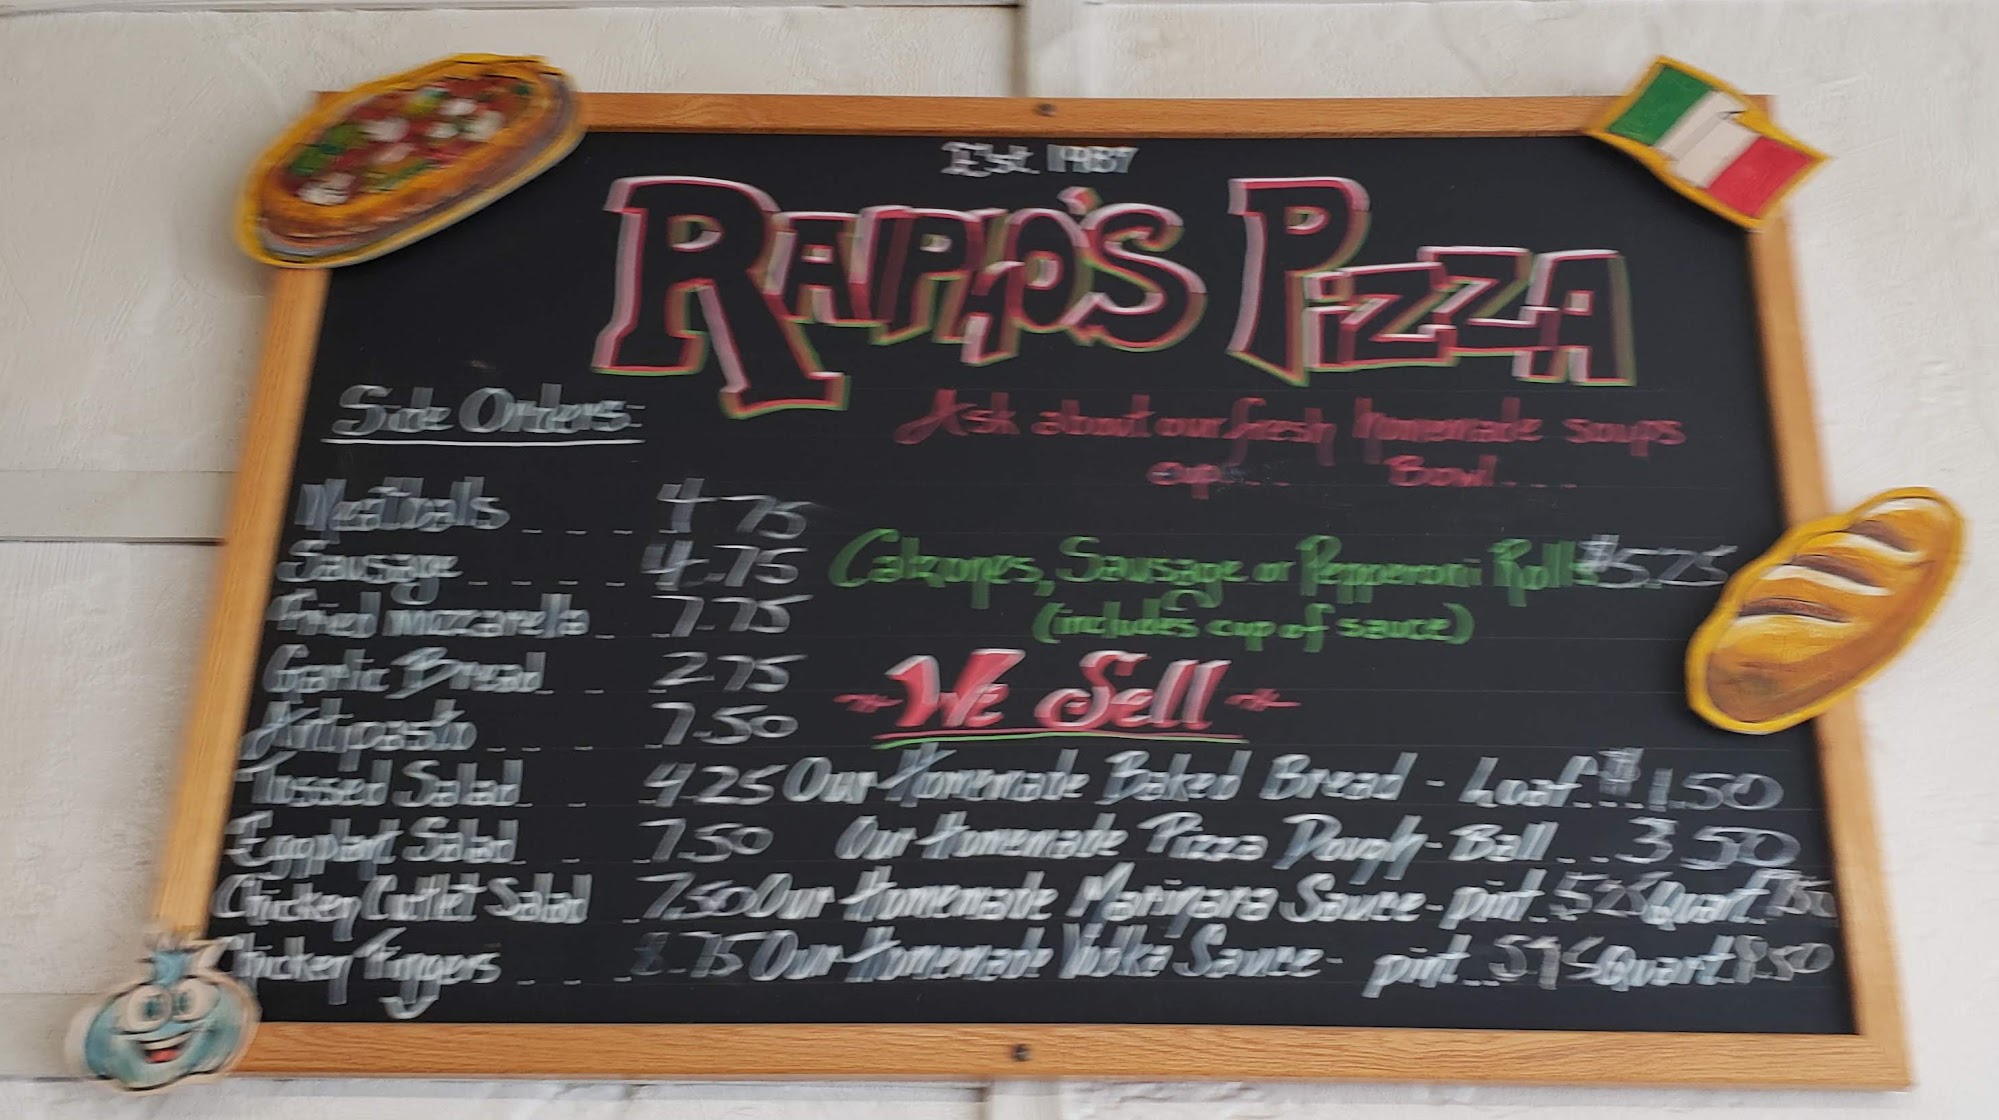 Est 1987
RALPHO'S PIZZA
Side Orders:
Meatballs _ _ _ 4.75
Sausage _ _ _ _ 4.75
Fried mozzarella _ _ 7.75
Garlic Bread _ _ 2.75
Antipasto _ _ _ _ 7.50
Tossed Salad _ _ 4.25
Eggplant Salad _ _ 7.50
Chicken Cutlet Salad _ 7.50
Chicken Fingers _ _ _ 8.75
Ask about our fresh homemade soups
cup ... Bowl ....
Calzones, Sausage or Pepperoni Rolls $5.25
(includes cup of sauce)
We Sell
Our Homemade Baked Bread - Loaf... $1.50
Our Homemade Pizza Dough - Ball ... 3.50
Our Homemade Marinara Sauce - pint.. 5.25 Quart
Our Homemade Vodka Sauce - pint.. 5.95 Quart